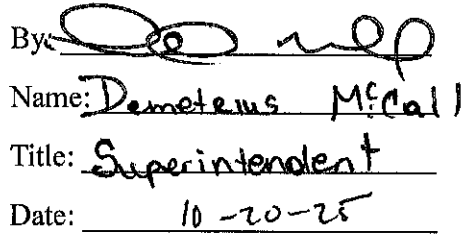 By:
Name: Demeterius McCall
Title: Superintendent
Date: 10-20-25